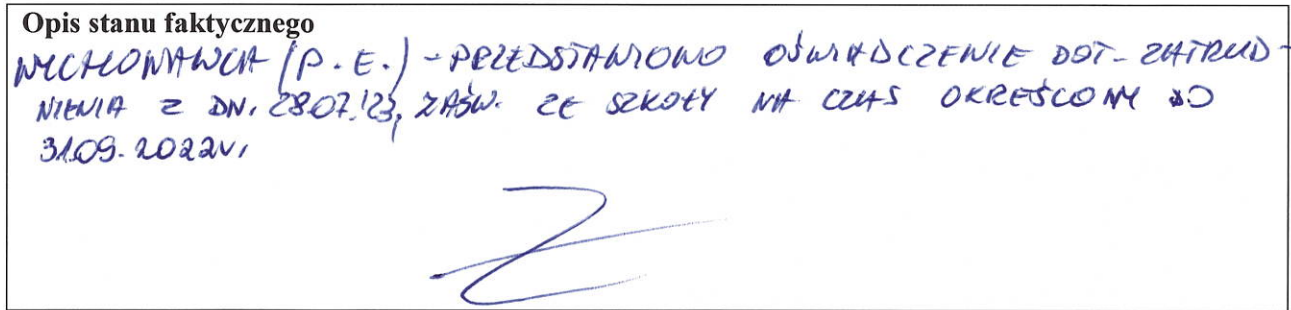 Opis stanu faktycznego
WYCHOWAWCA (P.E.) - PRZEDSTAWIONO OŚWIADCZENIE DOT. ZATRUD-
NIENIA Z DN. 28.07.'23, ZAŚW. ZE SZKOŁY NA CZAS OKREŚLONY DO
31.09.2022r.